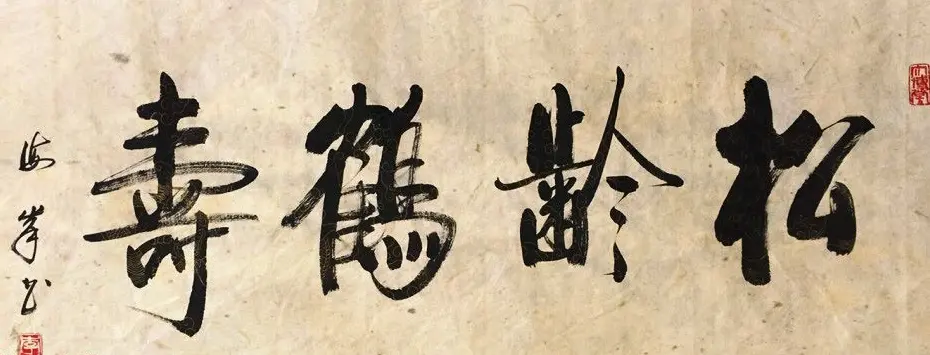 松齡鶴壽
海峰书